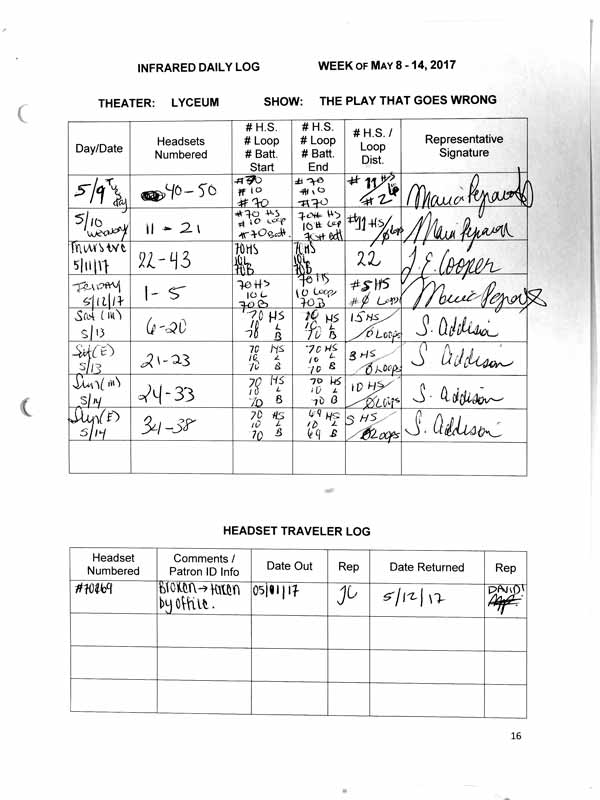 INFRARED DAILY LOG WEEK OF MAY 8 - 14, 2017
THEATER: LYCEUM SHOW: THE PLAY THAT GOES WRONG
Day/Date Headsets Numbered # H.S. # Loop # Batt. Start # H.S. # Loop # Batt. End # H.S. / Loop Dist. Representative Signature
5/9 40-50 #70 #10 #70 #70 #10 #70 # 11 HS # 2 Lp
5/10 11 - 21 #70 HS #10 Loop #70 Batt. 70# HS 10# Loop 70# Batt #11 HS /0 Loops
5/11/17 22-43 70HS 10L 70B 70HS 10L 70B 22 J.E. Cooper
FRIDAY 5/12/17 1-5 70 HS 10 L 70 B 70 HS 10 Loop 70 B #5 HS #0 Loops
Sat (m) 5/13 6-20 70 HS 10 L 70 B 70 HS 10 L 70 B 15 HS /0 Loops S. Addison
Sat (E) 5/13 21-23 70 HS 10 L 70 B 70 HS 10 L 70 B 3 HS /0 Loops S. Addison
Sun (m) 5/14 24-33 70 HS 10 L 70 B 70 HS 10 L 70 B 10 HS /0 Loops S. Addison
Sun (E) 5/14 34-38 70 HS 10 L 70 B 69 HS 10 L 69 B 5 HS /0 Loops S. Addison
HEADSET TRAVELER LOG
Headset Numbered Comments / Patron ID Info Date Out Rep Date Returned Rep
#70269 Broken → taken by office. 05/01/17 JC 5/12/17 DAVID!
16